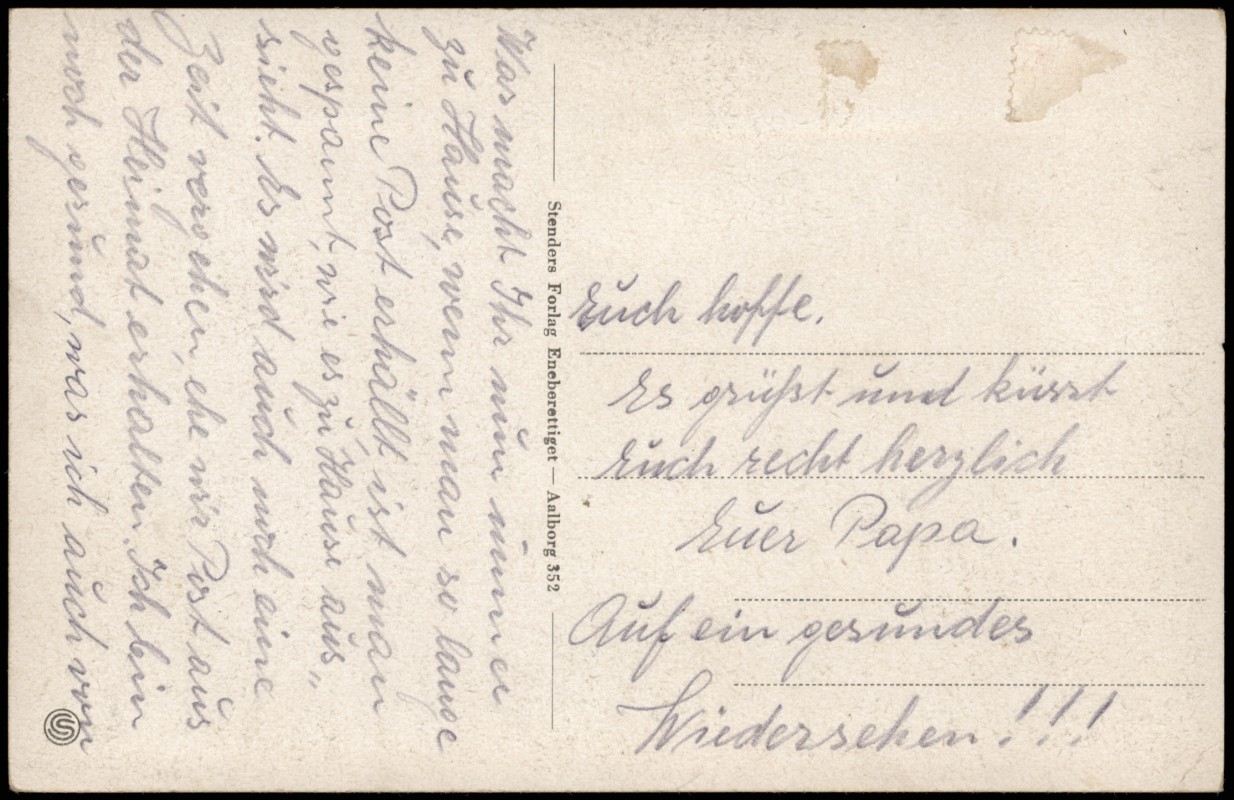 Was macht Ihr nun immer
zu Hause, wenn man so lange
keine Post erhällt, ist man
gespannt, wie es zu Hause aus„
sieht. Es wird auch noch eine
Zeit vergehen, ehe wir Post aus
der Heimat erhalten. Ich bin
noch gesund, was ich auch von
Stenders Forlag Eneberettiget — Aalborg 352
Euch hoffe.
Es grüßt und küsst
Euch recht herzlich
Euer Papa.
Auf ein gesundes
Wiedersehen!!!